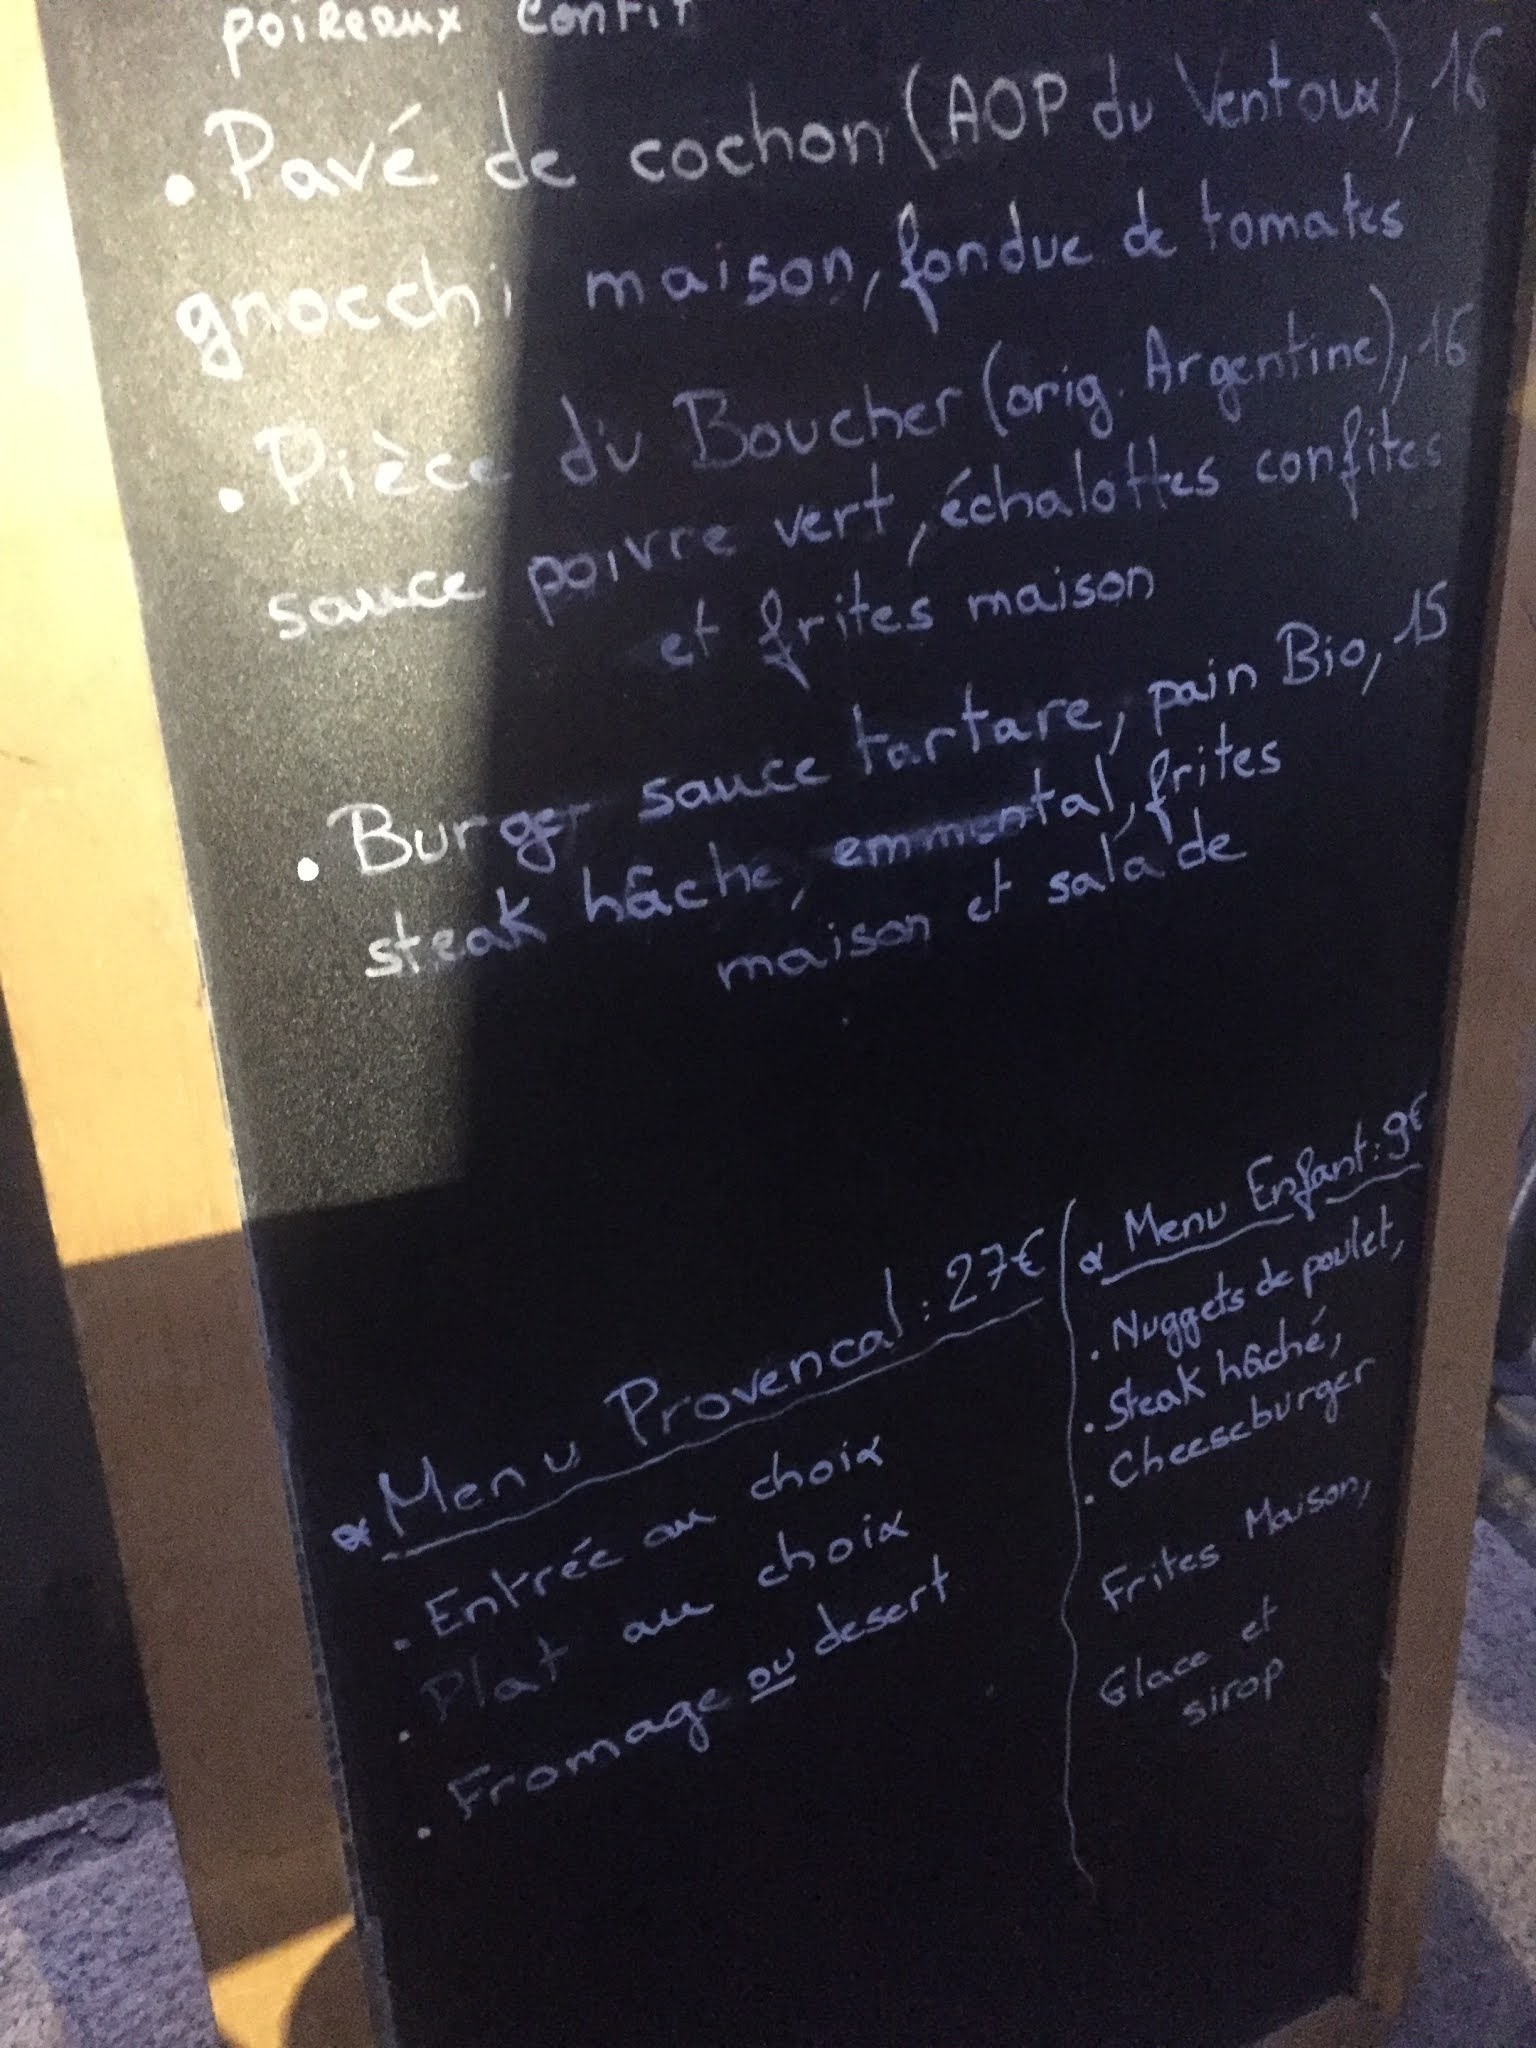 poireaux confit
• Pavé de cochon (AOP du Ventoux), 16
gnocchi maison, fondue de tomates
• Pièce du Boucher (orig. Argentine), 16
sauce poivre vert, échalottes confites
et frites maison
• Burger sauce tartare, pain Bio, 15
steak hâché, emmental, frites
maison et salade
Menu Provencal : 27€
• Entrée au choix
• Plat au choix
• Fromage ou desert
Menu Enfant : 9€
• Nuggets de poulet,
• Steak hâché,
• Cheeseburger
Frites Maison,
Glace et
sirop